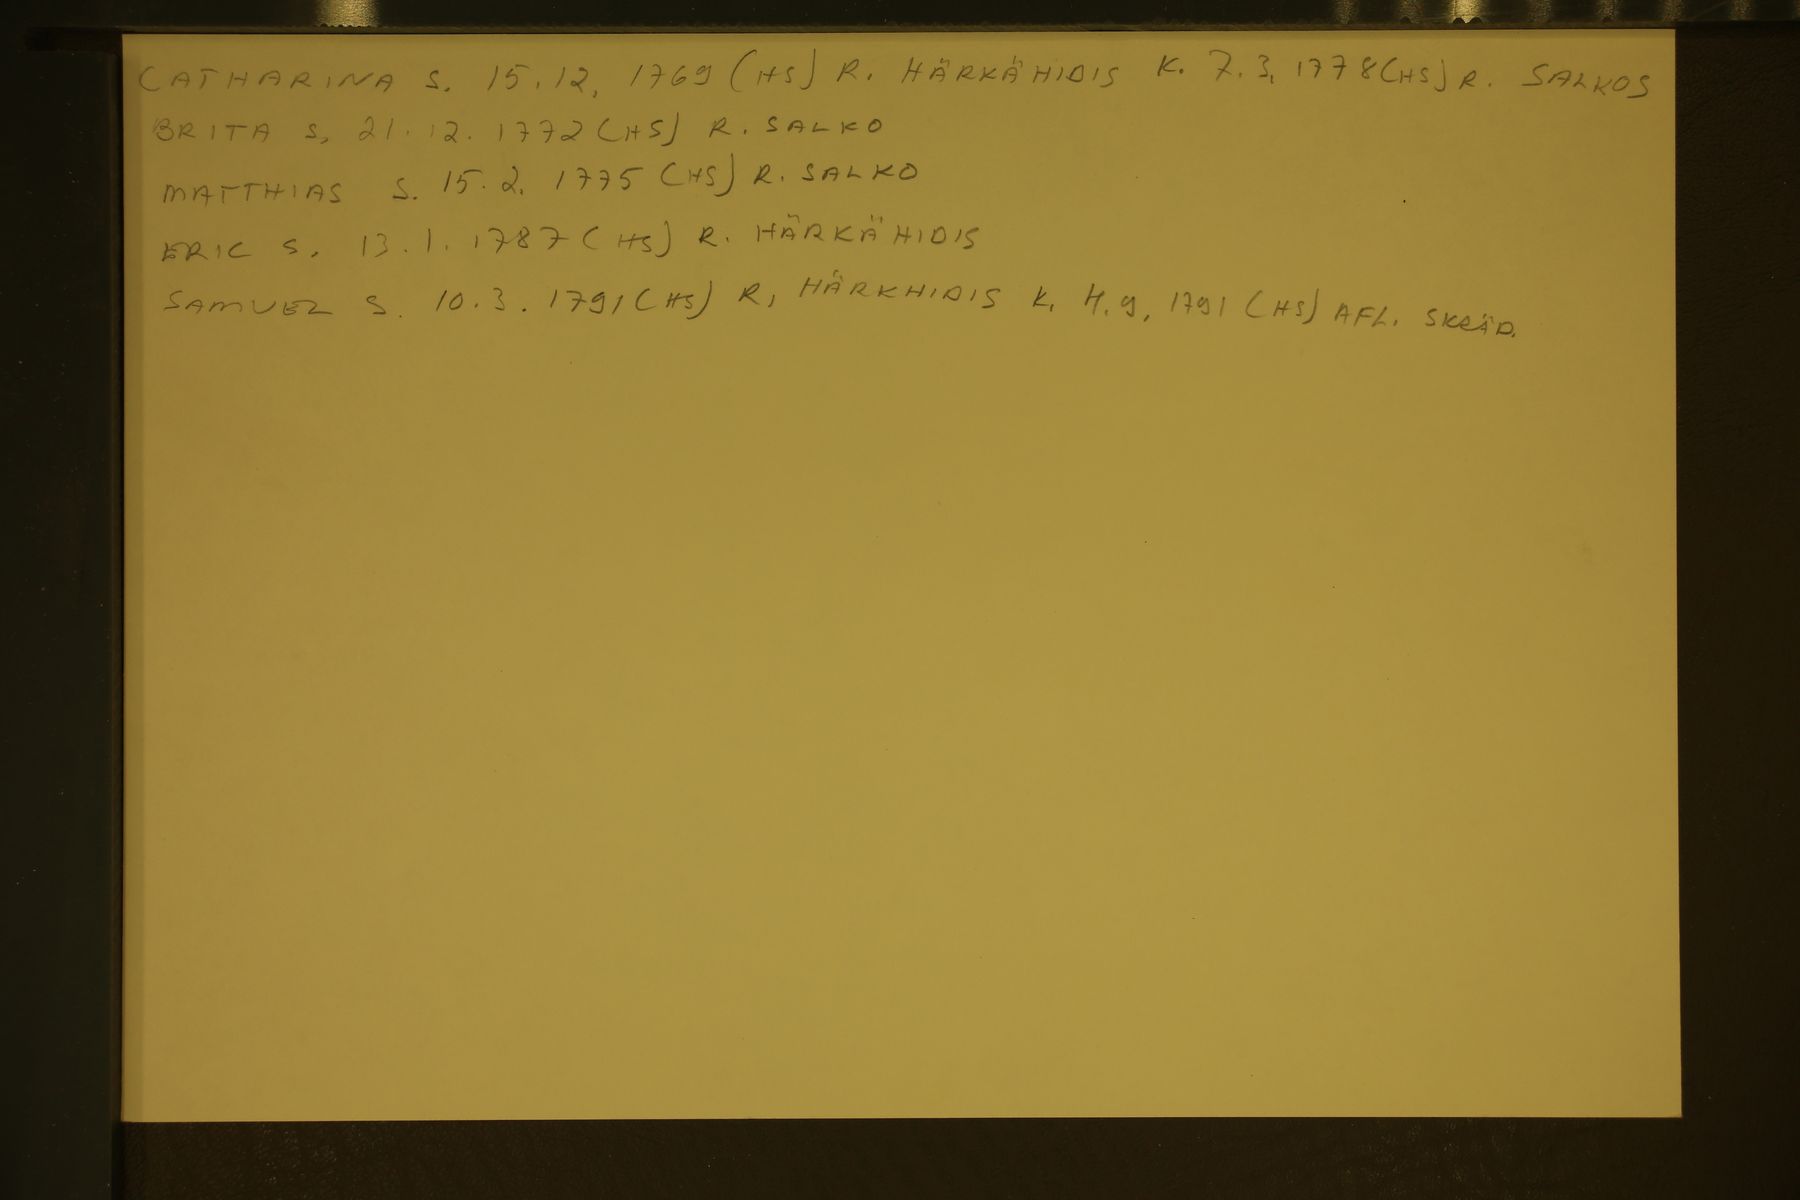 CATHARINA S. 15.12. 1769 (HS) R. HÄRKÄHIDIS K. 7.3. 1778 (HS) R. SALKOS
BRITA S. 21.12. 1772 (HS) R. SALKO
MATTHIAS S. 15.2. 1775 (HS) R. SALKO
ERIC S. 13.1. 1787 (HS) R. HÄRKÄHIDIS
SAMUEL S. 10.3. 1791 (HS) R, HÄRKHIDIS K. 4.9. 1791 (HS) AFL. SKRÄD.